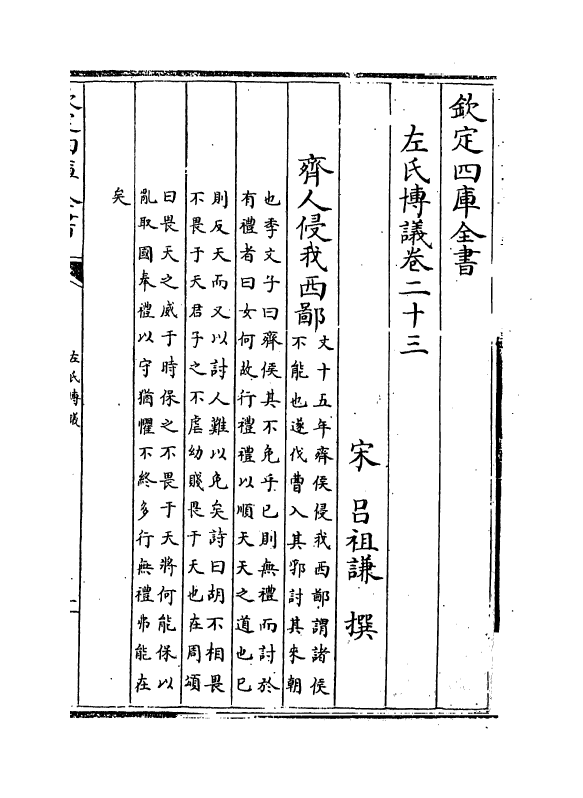 欽定四庫全書
左氏博議卷二十三
宋 呂祖謙 撰
齊人侵我西鄙
文十五年齊侯侵我西鄙謂諸侯
不能也遂伐曹入其郛討其來朝
也季文子曰齊侯其不免乎已則無禮而討於
有禮者曰女何故行禮禮以順天天之道也已
則反天而又以討人難以免矣詩曰胡不相畏
不畏于天君子之不虐幼賤畏于天也在周頌
曰畏天之威于時保之不畏于天將何能保以
亂取國奉禮以守猶懼不終多行無禮弗能在
矣
欽定四庫全書
左氏博議
一